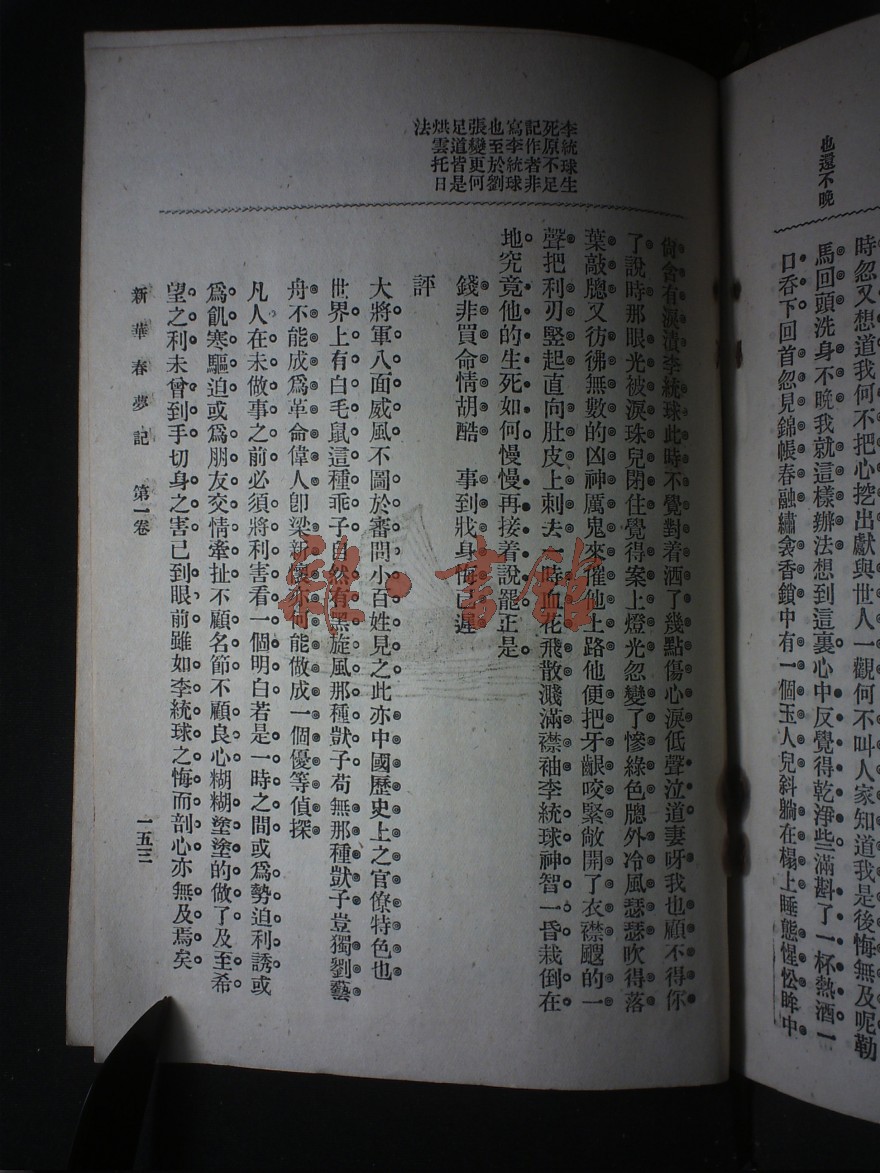 也還不晚
時忽又想道我何不把心挖出獻與世人一觀何不叫人家知道我是後悔無及呢勒
馬回頭洗身不晚我就這樣辦法想到這裏心中反覺得乾淨些滿斟了一杯熱酒一
口吞下回首忽見錦帳春融繡衾香鎖中有一個玉人兒斜躺在榻上睡態惺忪眸中
李統球生
死原不足
記作者非
寫李統球
也至於劉
張變更何
足道皆是
烘雲托日
法
尙含有淚漬李統球此時不覺對着洒了幾點傷心淚低聲泣道妻呀我也顧不得你
了說時那眼光被淚珠兒閉住覺得案上燈光忽變了慘綠色牕外冷風瑟瑟吹得落
葉敲牕又彷彿無數的凶神厲鬼來催他上路他便把牙齦咬緊敞開了衣襟颼的一
聲把利刃竪起直向肚皮上刺去一時血花飛散濺滿襟袖李統球神智一昏栽倒在
地究竟他的生死如何慢慢再接着說罷正是
錢非買命情胡酷　事到戕身悔已遲
評
大將軍八面威風不圖於審問小百姓見之此亦中國歷史上之官僚特色也
世界上有白毛鼠這種乖子自然有黑旋風那種獃子苟無那種獃子豈獨劉藝
舟不能成爲革命偉人卽梁新懷亦何能做成一個優等偵探
凡人在未做事之前必須將利害看一個明白若是一時之間或爲勢迫利誘或
爲飢寒驅迫或爲朋友交情牽扯不顧名節不顧良心糊糊塗塗的做了及至希
望之利未曾到手切身之害已到眼前雖如李統球之悔而剖心亦無及焉矣
新華春夢記　第一卷
一五三
雜·書館